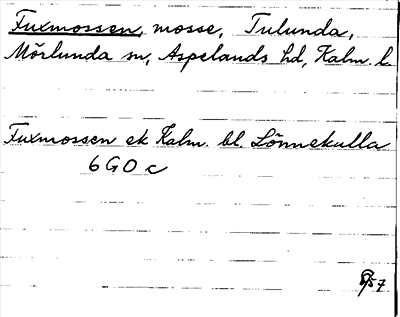 Fuxmossen, mosse, Tulunda,
Mörlunda sn, Aspelands hd, Kalm. l.
Fuxmossen ek Kalm. bl. Lönnekulla
6 G O c